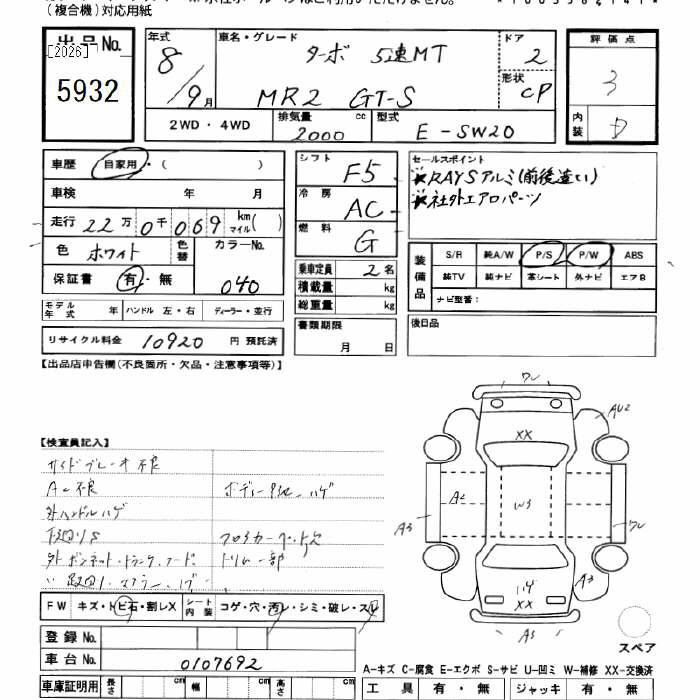 (複合機)対応用紙
出品No.
[2026]
5932
年式
8/9月
車名・グレード
ターボ 5速MT
MR2 GT-S
ドア
2
形状
CP
評価点
3
内装
D
2WD・4WD
排気量 2000 cc
型式 E-SW20
車歴 自家用・( )
車検 年 月
走行 22万0千069 km マイル( )
色 ホワイト
色替
カラーNo.
040
保証書 有・無
モデル年式 年 ハンドル 左・右 ディーラー・並行
リサイクル料金 10920 円 預託済
シフト F5
冷房 AC
燃料 G
乗車定員 2名
積載量 kg
総重量 kg
書類期限
月 日
セールスポイント
★RAYSアルミ(前後違い)
★社外エアロパーツ
装備品
S/R 純A/W P/S P/W ABS
純TV 純ナビ 革シート 外ナビ エアB
ナビ型番:
後日品
【出品店申告欄(不良箇所・欠品・注意事項等)】
【検査員記入】
サイドブレーキ不良
AC不良
外ハンドルハゲ
下回りS
フロアカーペット欠
トリム一部
FW キズ・トビ石・割レX
シート内装 コゲ・穴・汚レ・シミ・破レ・スレ
登録No.
車台No. 0107692
車庫証明用 長さ cm 幅 cm 高さ cm
ワレ
AU2
XX
A2
W3
A3
ワレ
A3
XX
A3
スペア
A-キズ C-腐食 E-エクボ S-サビ U-凹ミ W-補修 XX-交換済
工具 有・無 ジャッキ 有・無